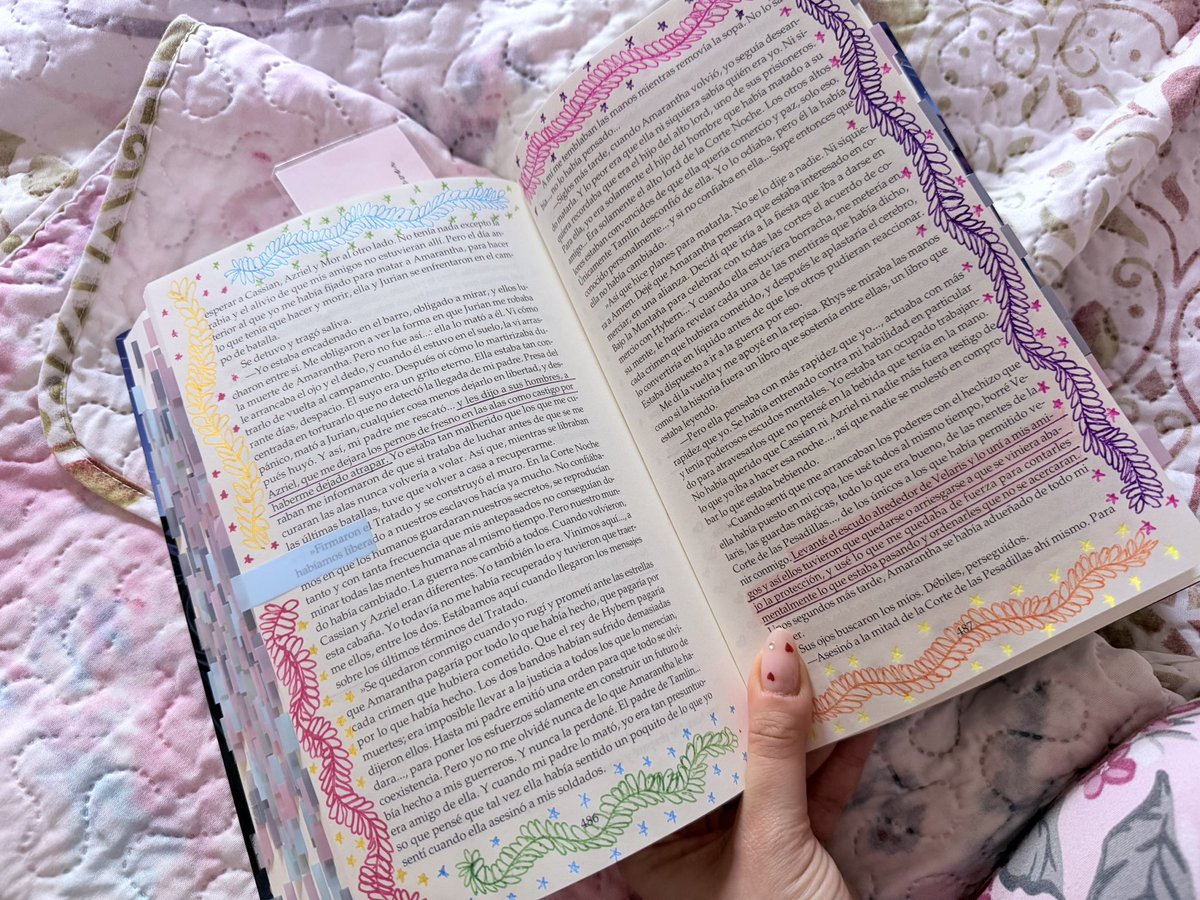 esperar a Cassian, Azriel y Mor al otro lado. No tenía nada excepto la
rabia y el alivio de que mis amigos no estuvieran allí. Pero el día an-
terior al que yo me había fijado para matar a Amarantha, para hacer
lo que tenía que hacer y morir, ella y Jurian se enfrentaron en el cam-
po de batalla.
Se detuvo y tragó saliva.
—Yo estaba encadenado en el barro, obligado a mirar, y ellos lu-
charon entre sí. Me obligaron a ver la forma en que Jurian me robaba
la muerte de Amarantha. Pero no fue así...: ella lo mató a él. Vi cómo
le arrancaba el ojo y el dedo, y cuando él estuvo en el suelo, la vi arras-
trarlo de vuelta al campamento. Después oí cómo lo martirizaba du-
rante días, despacio. El suyo era un grito eterno. Ella estaba tan con-
centrada en torturarlo que no detectó la llegada de mi padre. Presa del
pánico, mató a Jurian, cualquier cosa menos dejarlo en libertad, y des-
pués huyó. Y así, mi padre me rescató... y les dijo a sus hombres, a
Azriel, que me dejara los pernos de fresno en las alas como castigo por
haberme dejado atrapar. Yo estaba tan malherido que los que me cu-
raban me informaron de que si trataba de luchar antes de que se me
curaran las alas nunca volvería a volar. Así que, mientras se libraban
las últimas batallas, tuve que volver a casa a recuperarme.
»Firmaron el Tratado y se construyó el muro. En la Corte Noche
habíamos liberado a nuestros esclavos hacía ya mucho. No confiába-
mos en que los humanos guardaran nuestros secretos, se reproducían
tanto y con tanta frecuencia que mis antepasados no conseguían do-
minar todas las mentes humanas al mismo tiempo. Pero nuestro mun-
do había cambiado. La guerra nos cambió a todos. Cuando volvieron,
Cassian y Azriel eran diferentes. Yo también lo era. Vinimos aquí..., a
esta cabaña. Yo todavía no me había recuperado y tuvieron que traer-
me ellos, entre los dos. Estábamos aquí cuando llegaron los mensajes
sobre los últimos términos del Tratado.
»Se quedaron conmigo cuando yo rugí y prometí ante las estrellas
que Amarantha pagaría por todo lo que había hecho, que pagaría por
cada crimen que hubiera cometido. Que el rey de Hybern pagaría
por lo que había hecho. Los dos bandos habían sufrido demasiadas
muertes; era imposible llevar a la justicia a todos los que lo merecían,
dijeron ellos. Hasta mi padre emitió una orden para que todo se olvi-
dara..., para poner los esfuerzos solamente en construir un futuro de
coexistencia. Pero yo no me olvidé nunca de lo que Amarantha le ha-
bía hecho a mis guerreros. Y nunca la perdoné. El padre de Tamlin...
era amigo de ella. Y cuando mi padre lo mató, yo era tan presuntuo-
so que pensé que tal vez ella había sentido un poquito de lo que yo
sentí cuando ella asesinó a mis soldados.
486
me temblaban las manos mientras removía la sopa. No lo sa
no lo había pensado...
—Siglos más tarde, cuando Amarantha volvió, yo seguía desean-
do matarla. Y lo peor era que ella ni siquiera sabía quién era yo. Ni si-
quiera recordaba que era el hijo del alto lord, uno de sus prisioneros.
Para ella, yo era solamente el hijo del hombre que había matado a su
amigo... Era solamente el alto lord de la Corte Noche. Los otros altos
lores estaban convencidos de que ella quería comercio y paz, solo eso.
Únicamente Tamlin desconfió de ella. Yo lo odiaba, pero él la había
conocido íntimamente..., y si no confiaba en ella... Supe entonces que
ella no había cambiado.
»Así que hice planes para matarla. No se lo dije a nadie. Ni siquie-
ra a Amren. Dejé que Amarantha pensara que estaba interesado en co-
merciar, en una alianza. Decidí que iría a la fiesta que iba a darse en
Bajo la Montaña para celebrar con todas las cortes el acuerdo de co-
mercio con Hybern... Y cuando ella estuviera borracha, me metería en
su mente, le haría revelar cada una de las mentiras que había dicho,
cada crimen que hubiera cometido, y después le aplastaría el cerebro,
lo convertiría en líquido antes de que los otros pudieran reaccionar.
Estaba dispuesto a ir a la guerra por eso.
Me di la vuelta y me apoyé en la repisa. Rhys se miraba las manos
como si la historia fuera un libro que sostenía entre ellas, un libro que
estaba leyendo.
—Pero ella pensaba con más rapidez que yo..., actuaba con más
rapidez que yo. Se había entrenado contra mi habilidad en particular
y tenía poderosos escudos mentales. Yo estaba tan ocupado trabajan-
do para atravesarlos que no pensé en la bebida que tenía en la mano.
No había querido que Cassian ni Azriel ni nadie más fuera testigo de
lo que yo iba a hacer esa noche..., así que nadie se molestó en compro-
bar lo que estaba bebiendo.
»Cuando sentí que me arrancaban los poderes con el hechizo que
ella había puesto en mi copa, los usé todos al mismo tiempo, borré Ve-
laris, las guardas mágicas, todo lo que era bueno, de las mentes de la
Corte de las Pesadillas..., de los únicos a los que había permitido ve-
nir conmigo. Levanté el escudo alrededor de Velaris y lo uní a mis ami-
gos y así ellos tuvieron que quedarse o arriesgarse a que se viniera aba-
jo la protección, y usé lo que me quedaba de fuerza para contarles
mentalmente lo que estaba pasando y ordenarles que no se acercaran.
Unos segundos más tarde, Amarantha se había adueñado de todo mi
er.
Sus ojos buscaron los míos. Débiles, perseguidos.
—Asesinó a la mitad de la Corte de las Pesadillas ahí mismo. Para
487